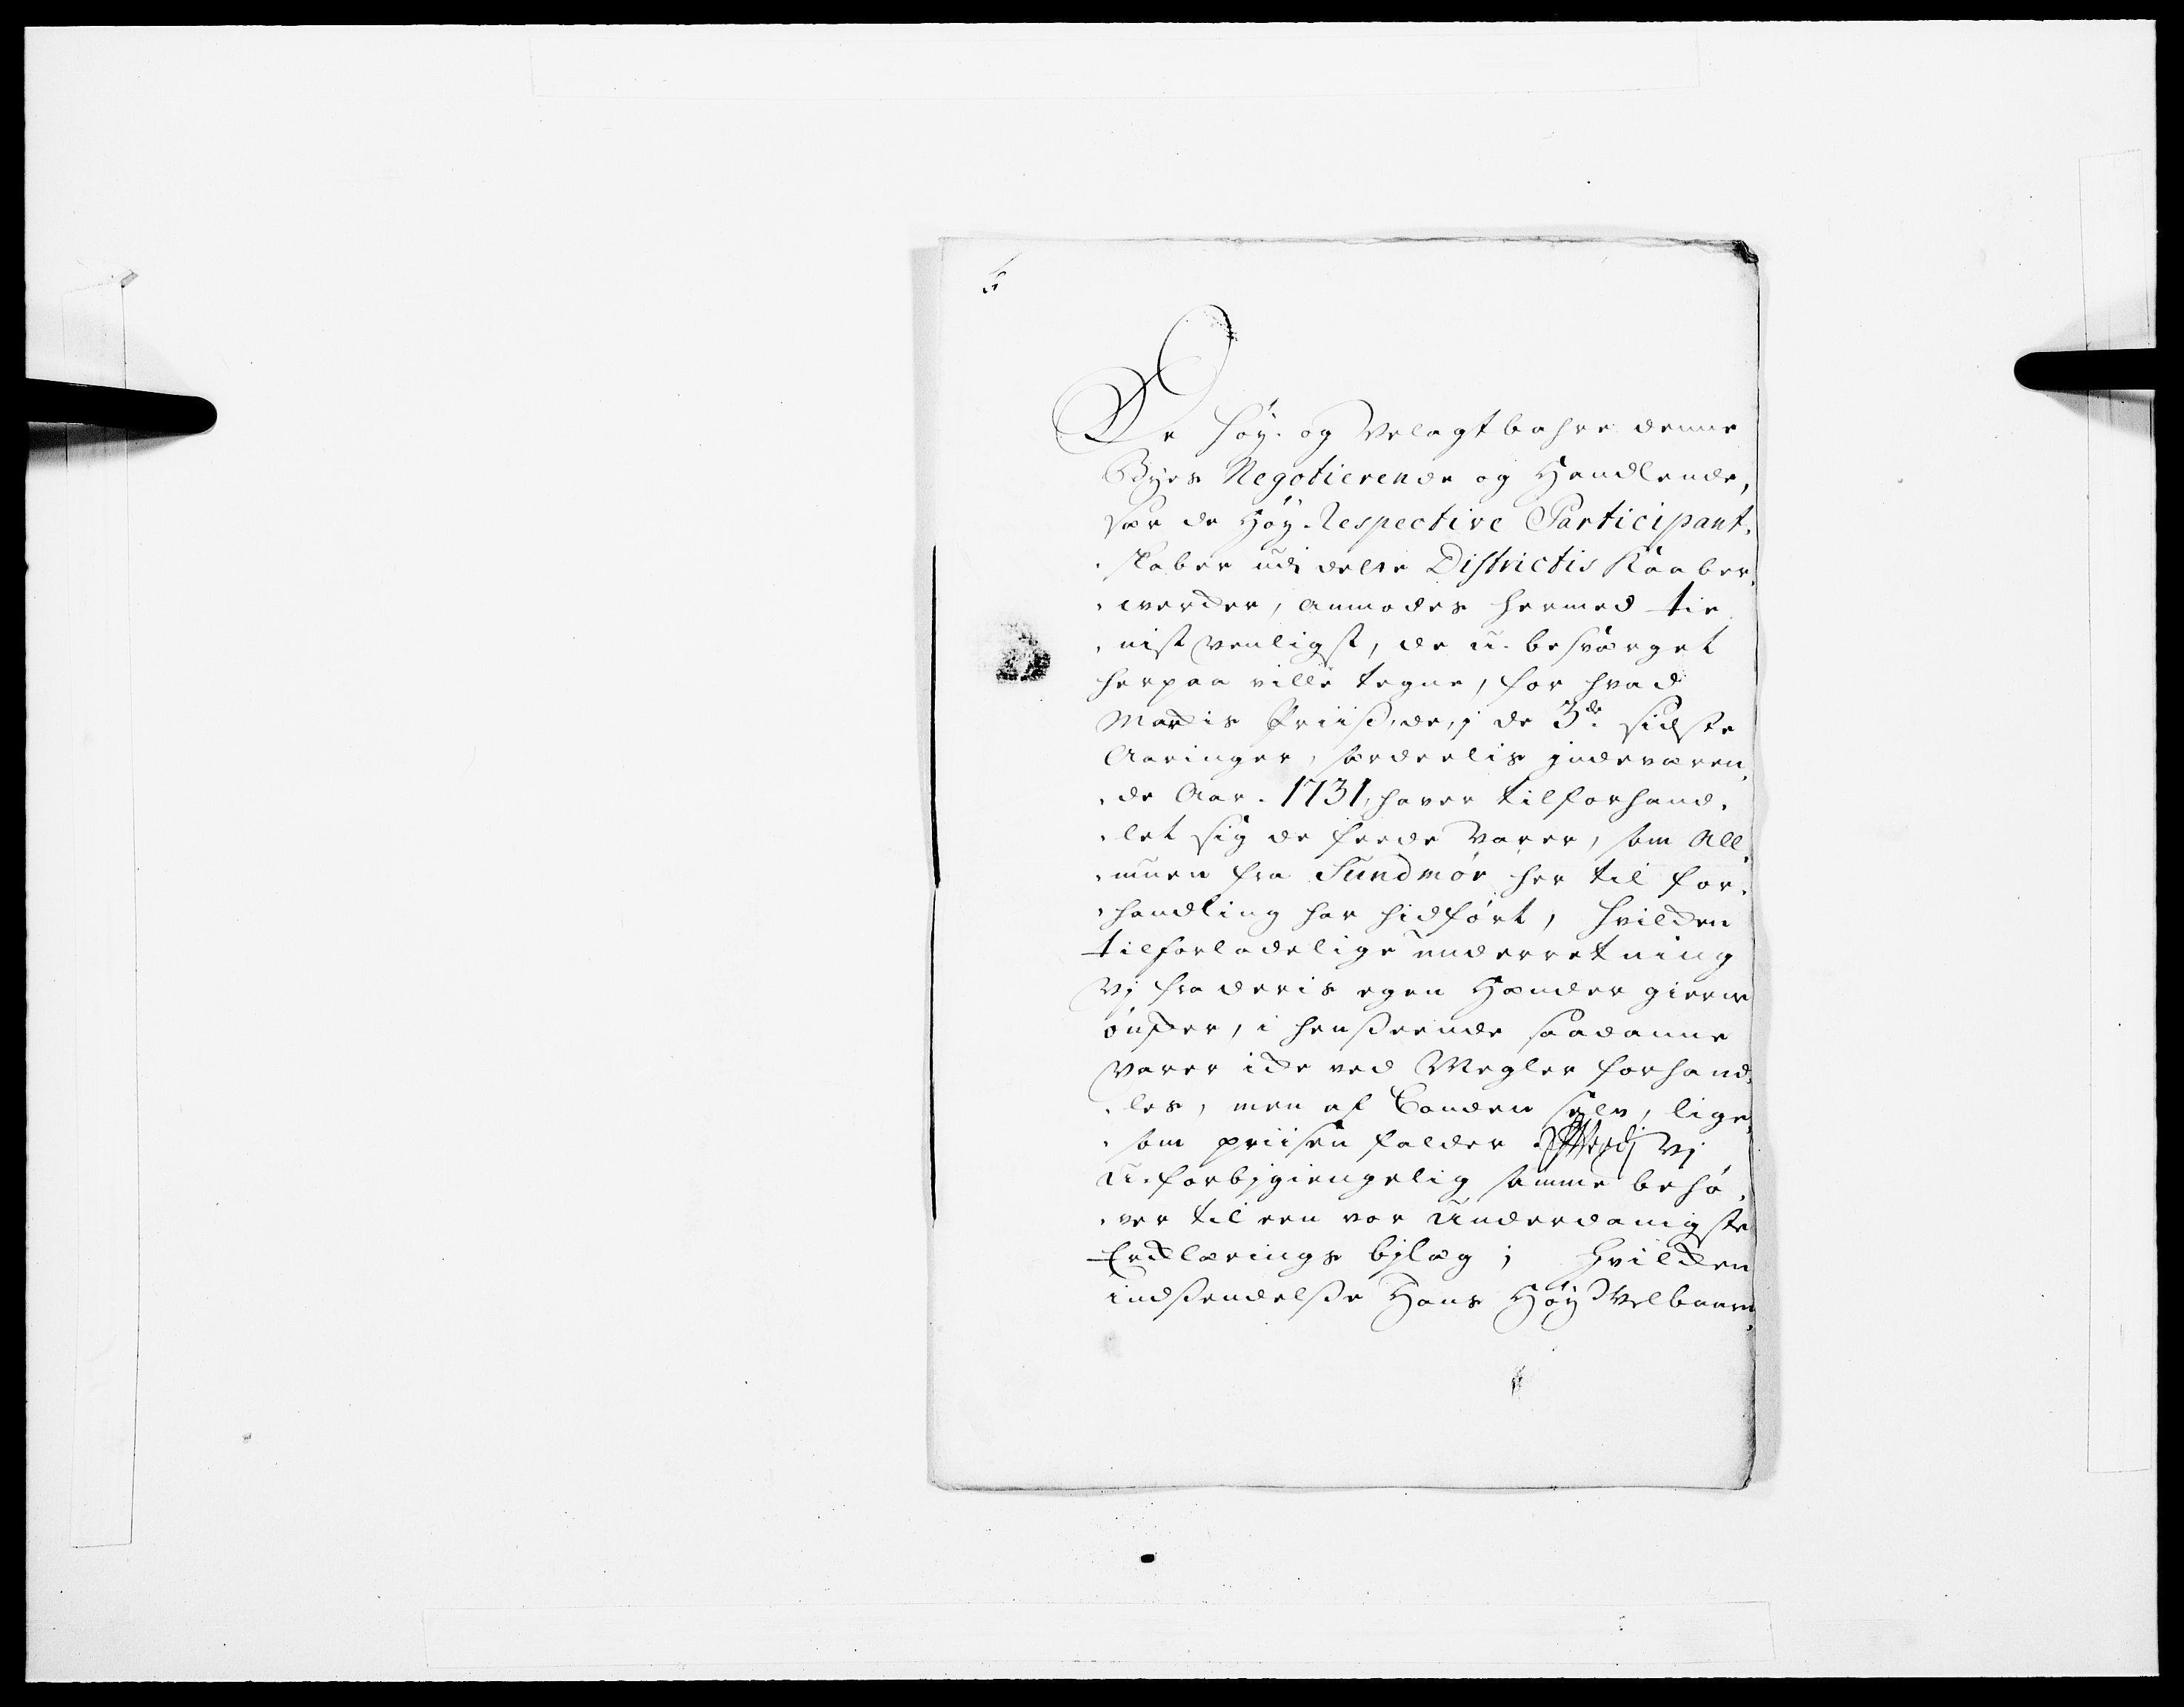 De høy- og Velagtbahre denne
Byes Negotierende og Handlende,
sær de Høy-Respective Participant-
skaber udi dette Districtis Kaaber
werker, anmodes hermed tie
nist venligst, de u-besværget
herpaa ville tegne, for hvad
Markis Priiß, de, j de 3de sidste
Aaringer, særdeelis jndeværen
de Aar 1731, haver tilforhand
let sig de feede Varer, som All
muen fra Sundmør her til for
handling har hidført, hvilken
tilforladelige underretning
Vj fra deris egen Hænder gierne
ønsker, i henseende saadanne
Varer icke ved Megler forhand
les, men af Bonden selv, lige
som priisen falder Vj
u-forbjgiengelig samme behø
ver til een vor Underdanigste
Erklærings bjlæg; Hvilken
indsendelse Hans Høy Velbaaren